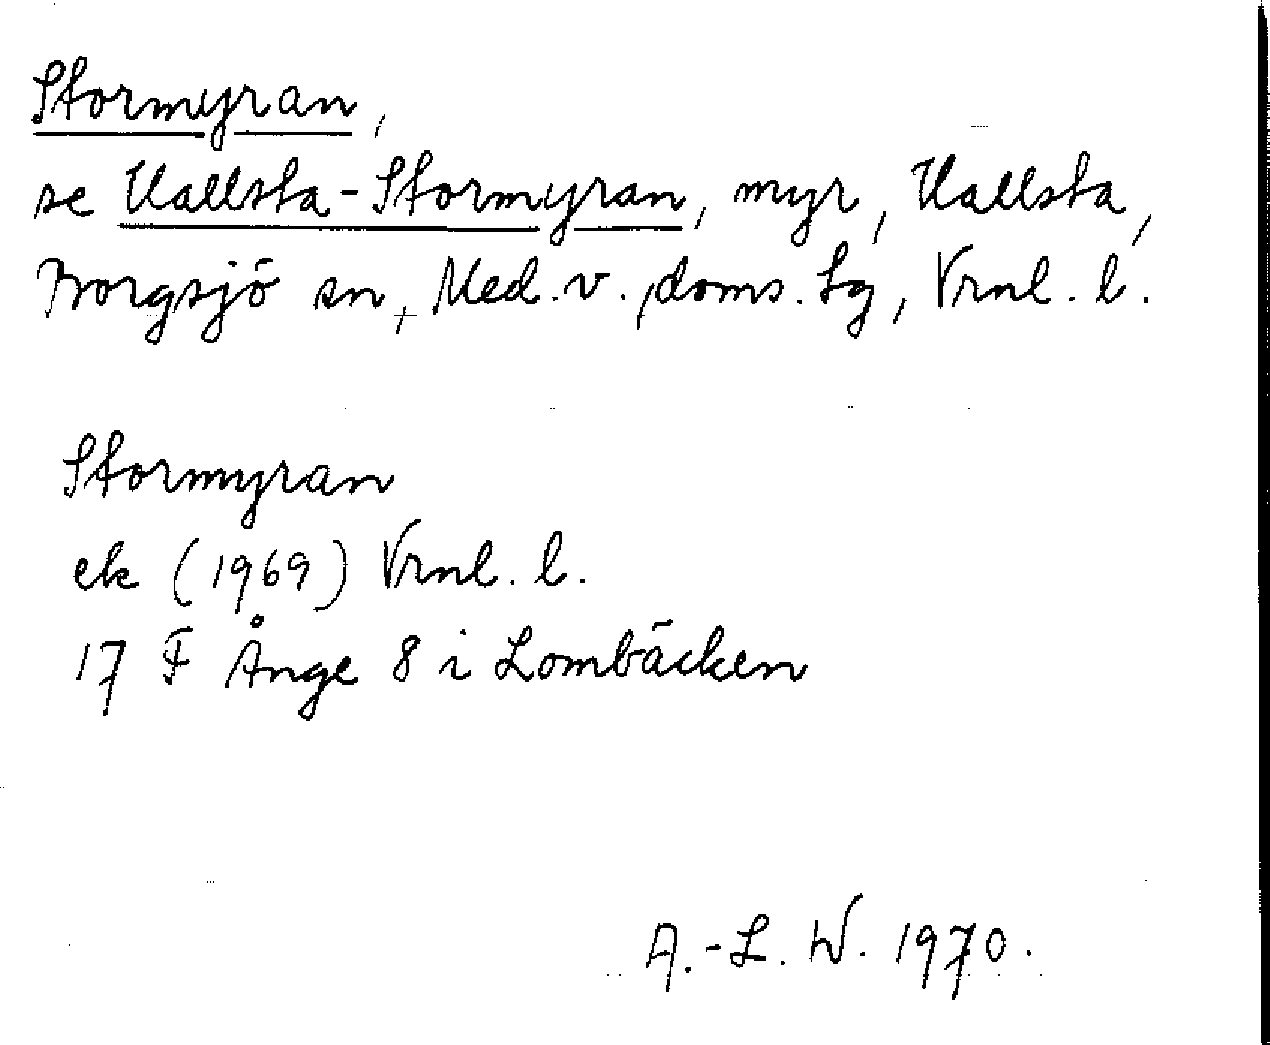 Stormyran,
se Vallsta-Stormyran, myr, Vallsta,
Borgsjö sn, Med. v., doms. lg, Vrnl. l.
Stormyran
ek (1969) Vrnl. l.
17 F Ånge 8 i Lombäcken
A.-L. W. 1970.